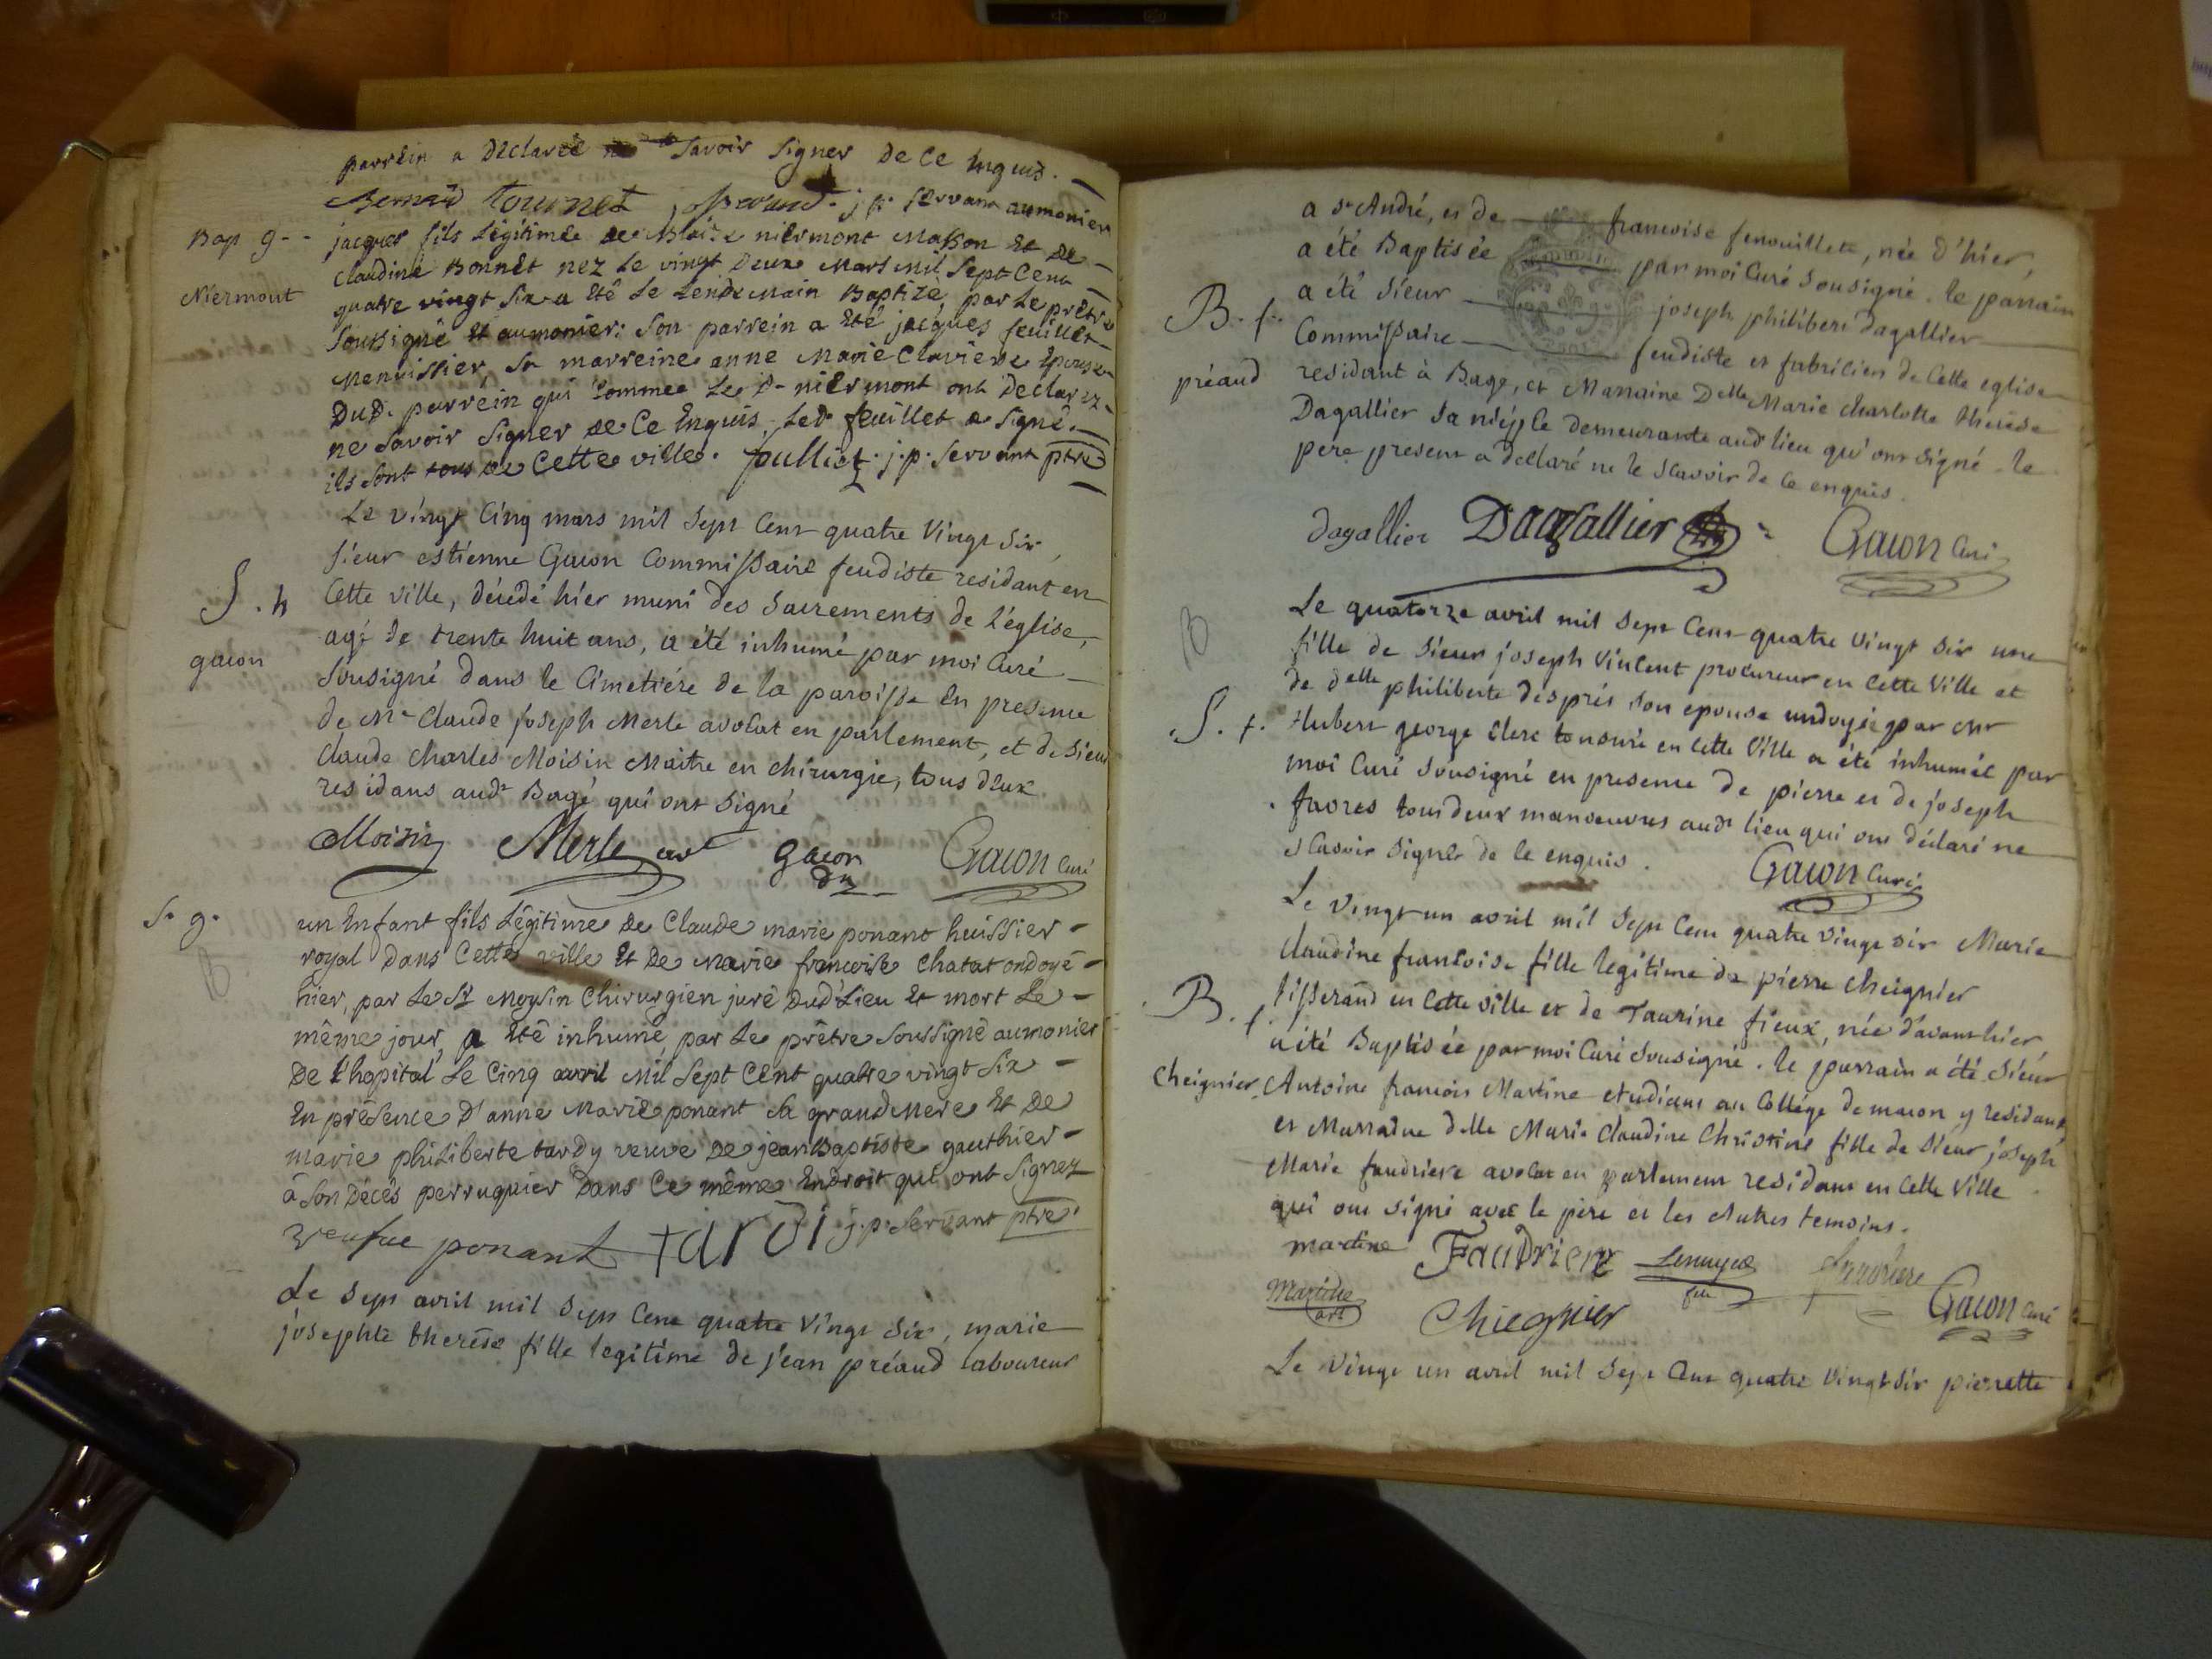 parrein a déclaréé savoir signer de ce enquis.
Bernard tournet, j. p. servant aumonier
Bap g--
jacques fils légitime de Blaise niermont Masson et de
Claudine Bonnet nez le vingt deux Mars mil sept Cent
Niermont
quatre vingt six a eté le lendemain Baptizé par le prêtre
soussigné et aumonier: son parrein a eté jacques feuillet
Menuissier sa marreine anne Marie Claviere Epouse
dud. parrein qui comme le Sr niermont ont declarez
ne savoir signer de ce enquis, led. feuillet a signé.
ils sont tous de cette ville. fulliet. j. p. servant ptre
Le vingt cinq mars mil sept cent quatre vingt six
sieur estienne Gacon Commissaire feudiste residant en
S. h
Cette ville, décédé hier muni des sacrements de l'église,
agé de trente huit ans, a été inhumé par moi Curé
gacon
sousigné dans le Cimetiére de la paroisse en presence
de Mre Claude joseph Merle avocat en parlement, et de sieur
Claude Charles Moisin Maitre en chirurgie, tous deux
residans audt Bagé qui ont signé
Moisin Merle avt gacon dm Gacon curé
S. g.
un Enfant fils légitime de Claude marie ponant huissier
royal dans cette ville et de marie francoise Chatat ondoyé
B
hier, par le Sr Moysin Chirurgien juré dud. Lieu et mort le
même jour, a eté inhumé par le prêtre soussigné aumonier
de l'hopital le Cinq avril mil sept cent quatre vingt six
En présence d'anne Marie ponant sa grand Mere et de
marie philiberte tardy veuve de jean Baptiste gauthier
à son décès perruquier dans ce même endroit qui ont signez
veufve ponant tardi j. p. servant ptre.
Le sept avril mil sept cent quatre vingt six, marie
josephte therese fille legitime de jean préaud laboureur
a st André, et de francoise fenouillet, née d'hier,
a été Baptisée par moi Curé sousigné. le parrain
a été sieur joseph philibert Dagallier
B. f.
Commissaire feudiste et fabricien de cette eglise
préaud
residant à Bagé, et Marraine Delle Marie charlotte therese
Dagallier sa niépce demeurante aud. lieu qu'ont signé. le
pere present a declaré ne le scavoir de ce enquis.
Dagallier Dagallier Gacon Curé
Le quatorze avril mil sept cent quatre vingt six une
B
fille de sieur joseph Vincent procureur en cette Ville et
de delle philiberte després son epouse undoyée par mr
S. f.
Hubert george clerc tonsuré en cette Ville a été inhumée par
moi Curé sousigné en presence de pierre et de joseph
favres tous deux manœuvres audt lieu qui ont déclaré ne
scavoir signer de ce enquis. Gacon Curé
Le vingt un avril mil sept cent quatre vingt six Marie
Claudine francoise fille legitime de pierre cheignier
B. f.
tisserand en cette ville et de Taurine fieux, née d'avant hier,
a été Baptisée par moi Curé sousigné. le parrain a été sieur
Cheignier
Antoine francois Martine etudiant au Collége de macon y residant,
et Marraine delle Marie Claudine Christine fille de sieur joseph
Marie faudriere avocat en parlement residant en cette Ville
qui ont signé avec le pere et les autres temoins.
martine Faudriere
Martine Chiegnier Gacon Curé
Le vingt un avril mil sept cent quatre vingt six pierrette